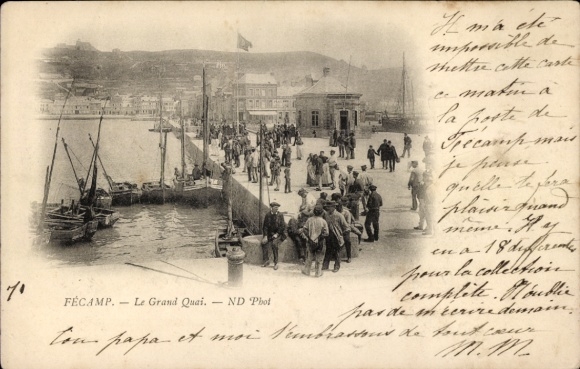 Il m'a été
impossible de
mettre cette carte
ce matin à
la poste de
Fécamp mais
je pense
qu'elle te fera
plaisir quand
même. Il y
en a 18 différentes
pour la collection
complète. N'oublie
pas de m'écrire demain.
Ton papa et moi t'embrassons de tout cœur
M. M.
71
FÉCAMP. — Le Grand Quai. — ND Phot